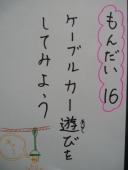 もんだい 16
ケーブルカー遊びを
してみよう